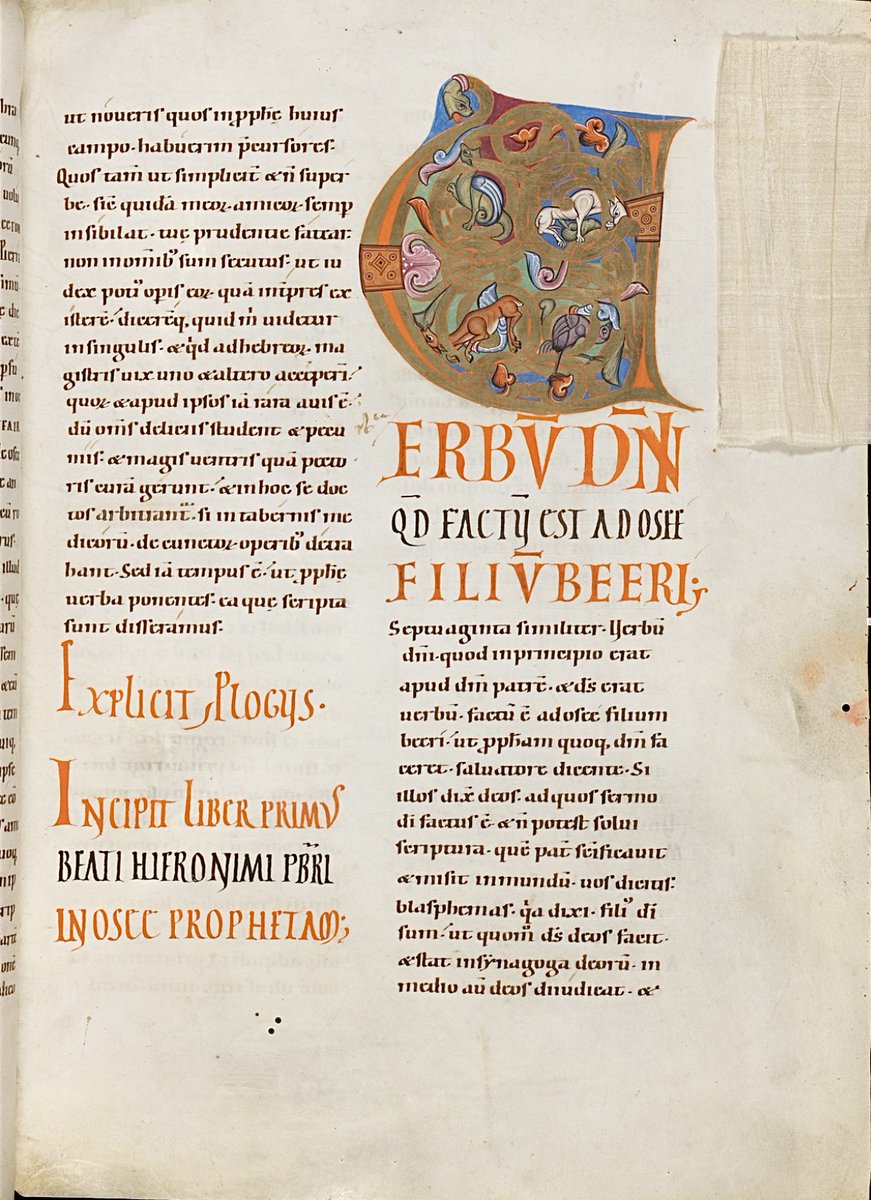 ut noveris quos in pphc̄ huius
campo habuerim p̄cursores.
Quos tam̄ ut simplicit̄ & n̄ super
be. sic̄ quidā meoꝝ amicoꝝ semp
insibilat. tuę prudentię fatear.
non in omīb; sum secutus. ut iu
dex poti᷒ opis eoꝝ quā int̄pres ex
istere. dicereq; quid m̄ uidetur
in singulis. & qd ab hebreoꝝ ma
gistris uix uno & altero accep̄erī.
quoꝝ & apud ipsos iā rara auis ē.
dū om̄s deliciis student & pecu
niis. & magis uentris quā pecto
ris curā gerunt. & in hoc se doc
tos arbitrant̄. si in tabernis me
dicorū. de cunctoꝝ operib; detra
hant. Sed iā tempus ē. ut pphc̄
uerba ponentes. ea que scripta
sunt disseramus.
EXPLICIT PLOGUS.
INCIPIT LIBER PRIMUS
BEATI HIERONIMI PBR̄I
IN OSEE PROPHETAM;
VERBV̄ DN̄I
QD̄ FACTŪ EST AD OSEE
FILIV̄ BEERI;
Septuaginta similiter. Uerbū
dn̄i. quod in principio erat
apud dm̄ patrē. & ds̄ erat
uerbū. factū ē ad oseę filium
beeri. ut ppham quoq; dm̄ fa
ceret. saluatore dicente. Si
illos dix̄ deos. ad quos sermo
dī factus ē. & n̄ potest solui
scriptura. quē pat̄ sc̄ificauit
& misit in mundū. uos dicitis.
blasphemas. q̇a dixi. fili᷒ dī
sum. ut quom̄ ds̄ deos facit.
& stat in synagoga deorū. in
medio aū deos diiudicat. &